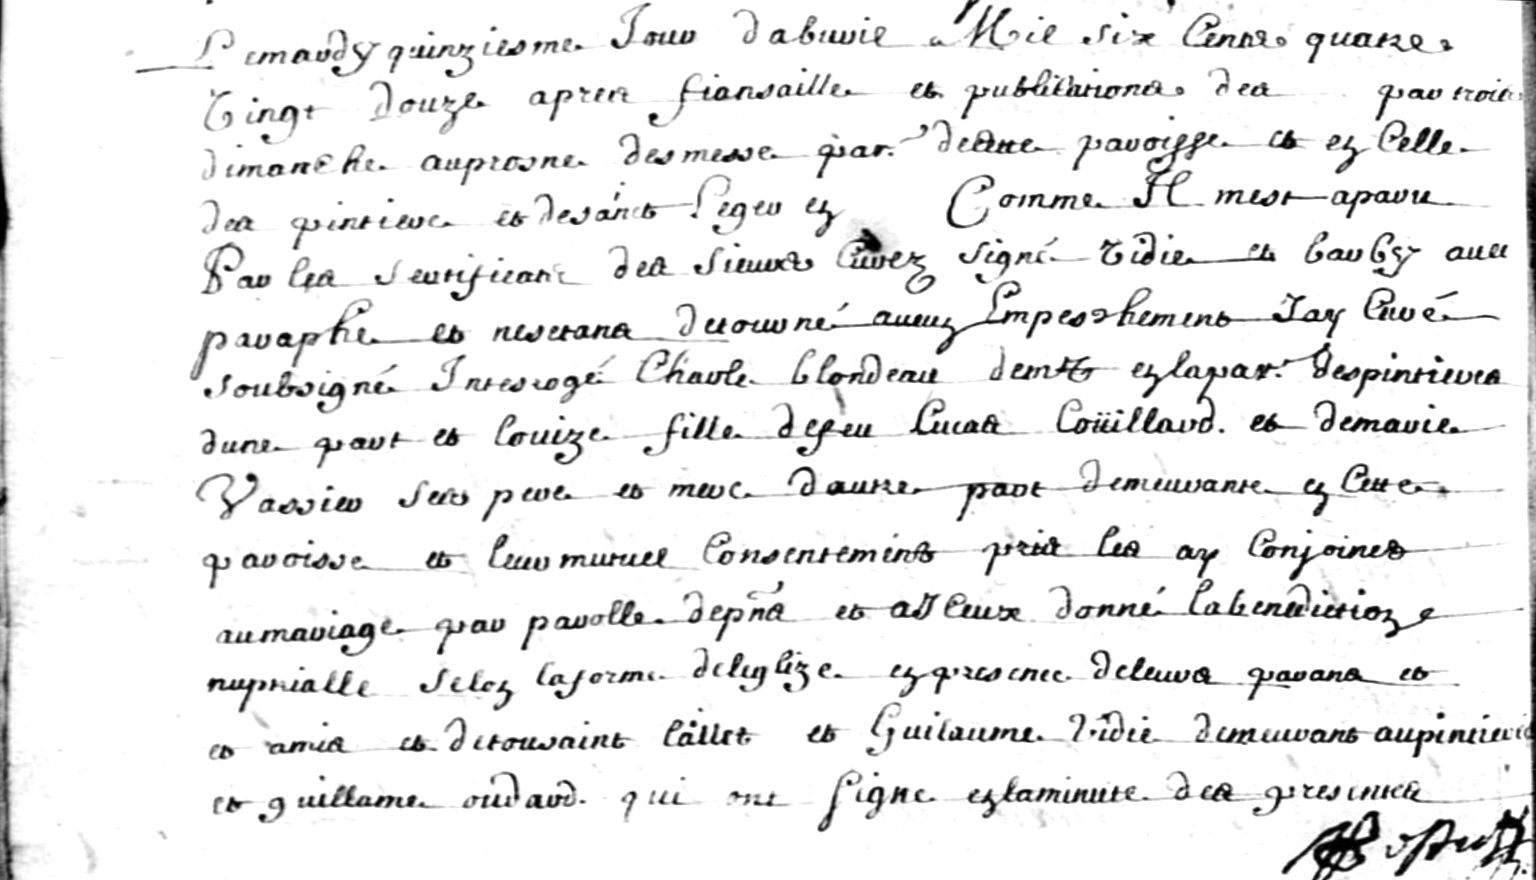 Lemardy quinziesme Jour dabvril Mil six Cents quatre
Vingt Douze apres fiansaille et publications des par trois
dimanche auprosne desmesse par. decette paroisse et en Celle
des pintiere et desainct Leger en Comme Il mest aparu
Par les sertificat des sieurs Curez signé Vidie et avec
paraphe et nestant detourné aucun Empeschement Jay Curé
soubsigné Interogé Charle blondeau demt enlapar. despintieres
dune part et Louize fille defeu Lucas Coüillard. et demarie
Vassier ses pere et mere dautre part demeurante en Cette
paroisse et leur mutuel Consentement pris les ay Conjoinct
aumariage par parolle depnt et a Iceux donné labenediction
nuptialle selon laforme deleglize en presence deleurs parans et
et amis et detousaint Caillet et Guilaume Vidie demeurant aupintieres
et guillame oudard. qui ont signe enlaminute des presentes